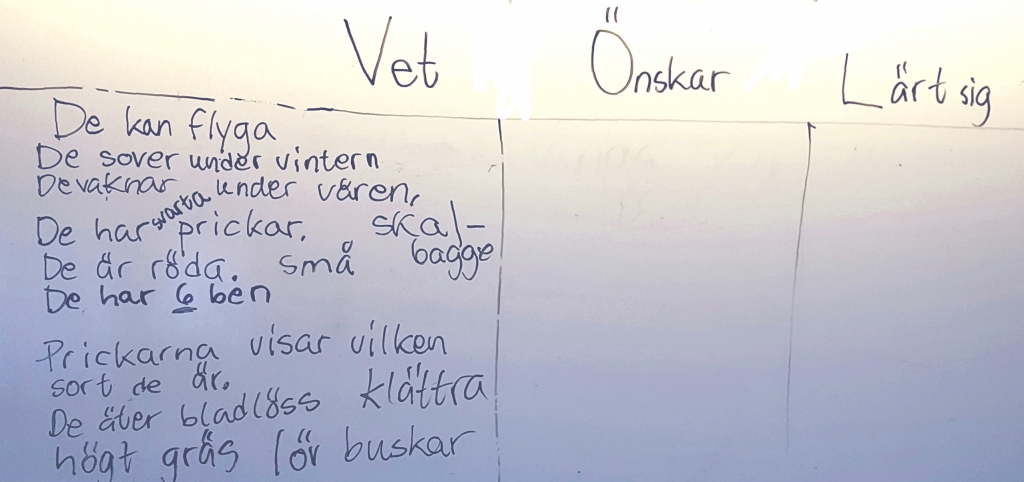 Vet Önskar Lärt sig
De kan flyga
De sover under vintern
De vaknar under våren,
De har svarta prickar. skal-
bagge
De är röda. små
De har 6 ben
Prickarna visar vilken
sort de är.
De äter bladlöss klättra
högt gräs löv buskar